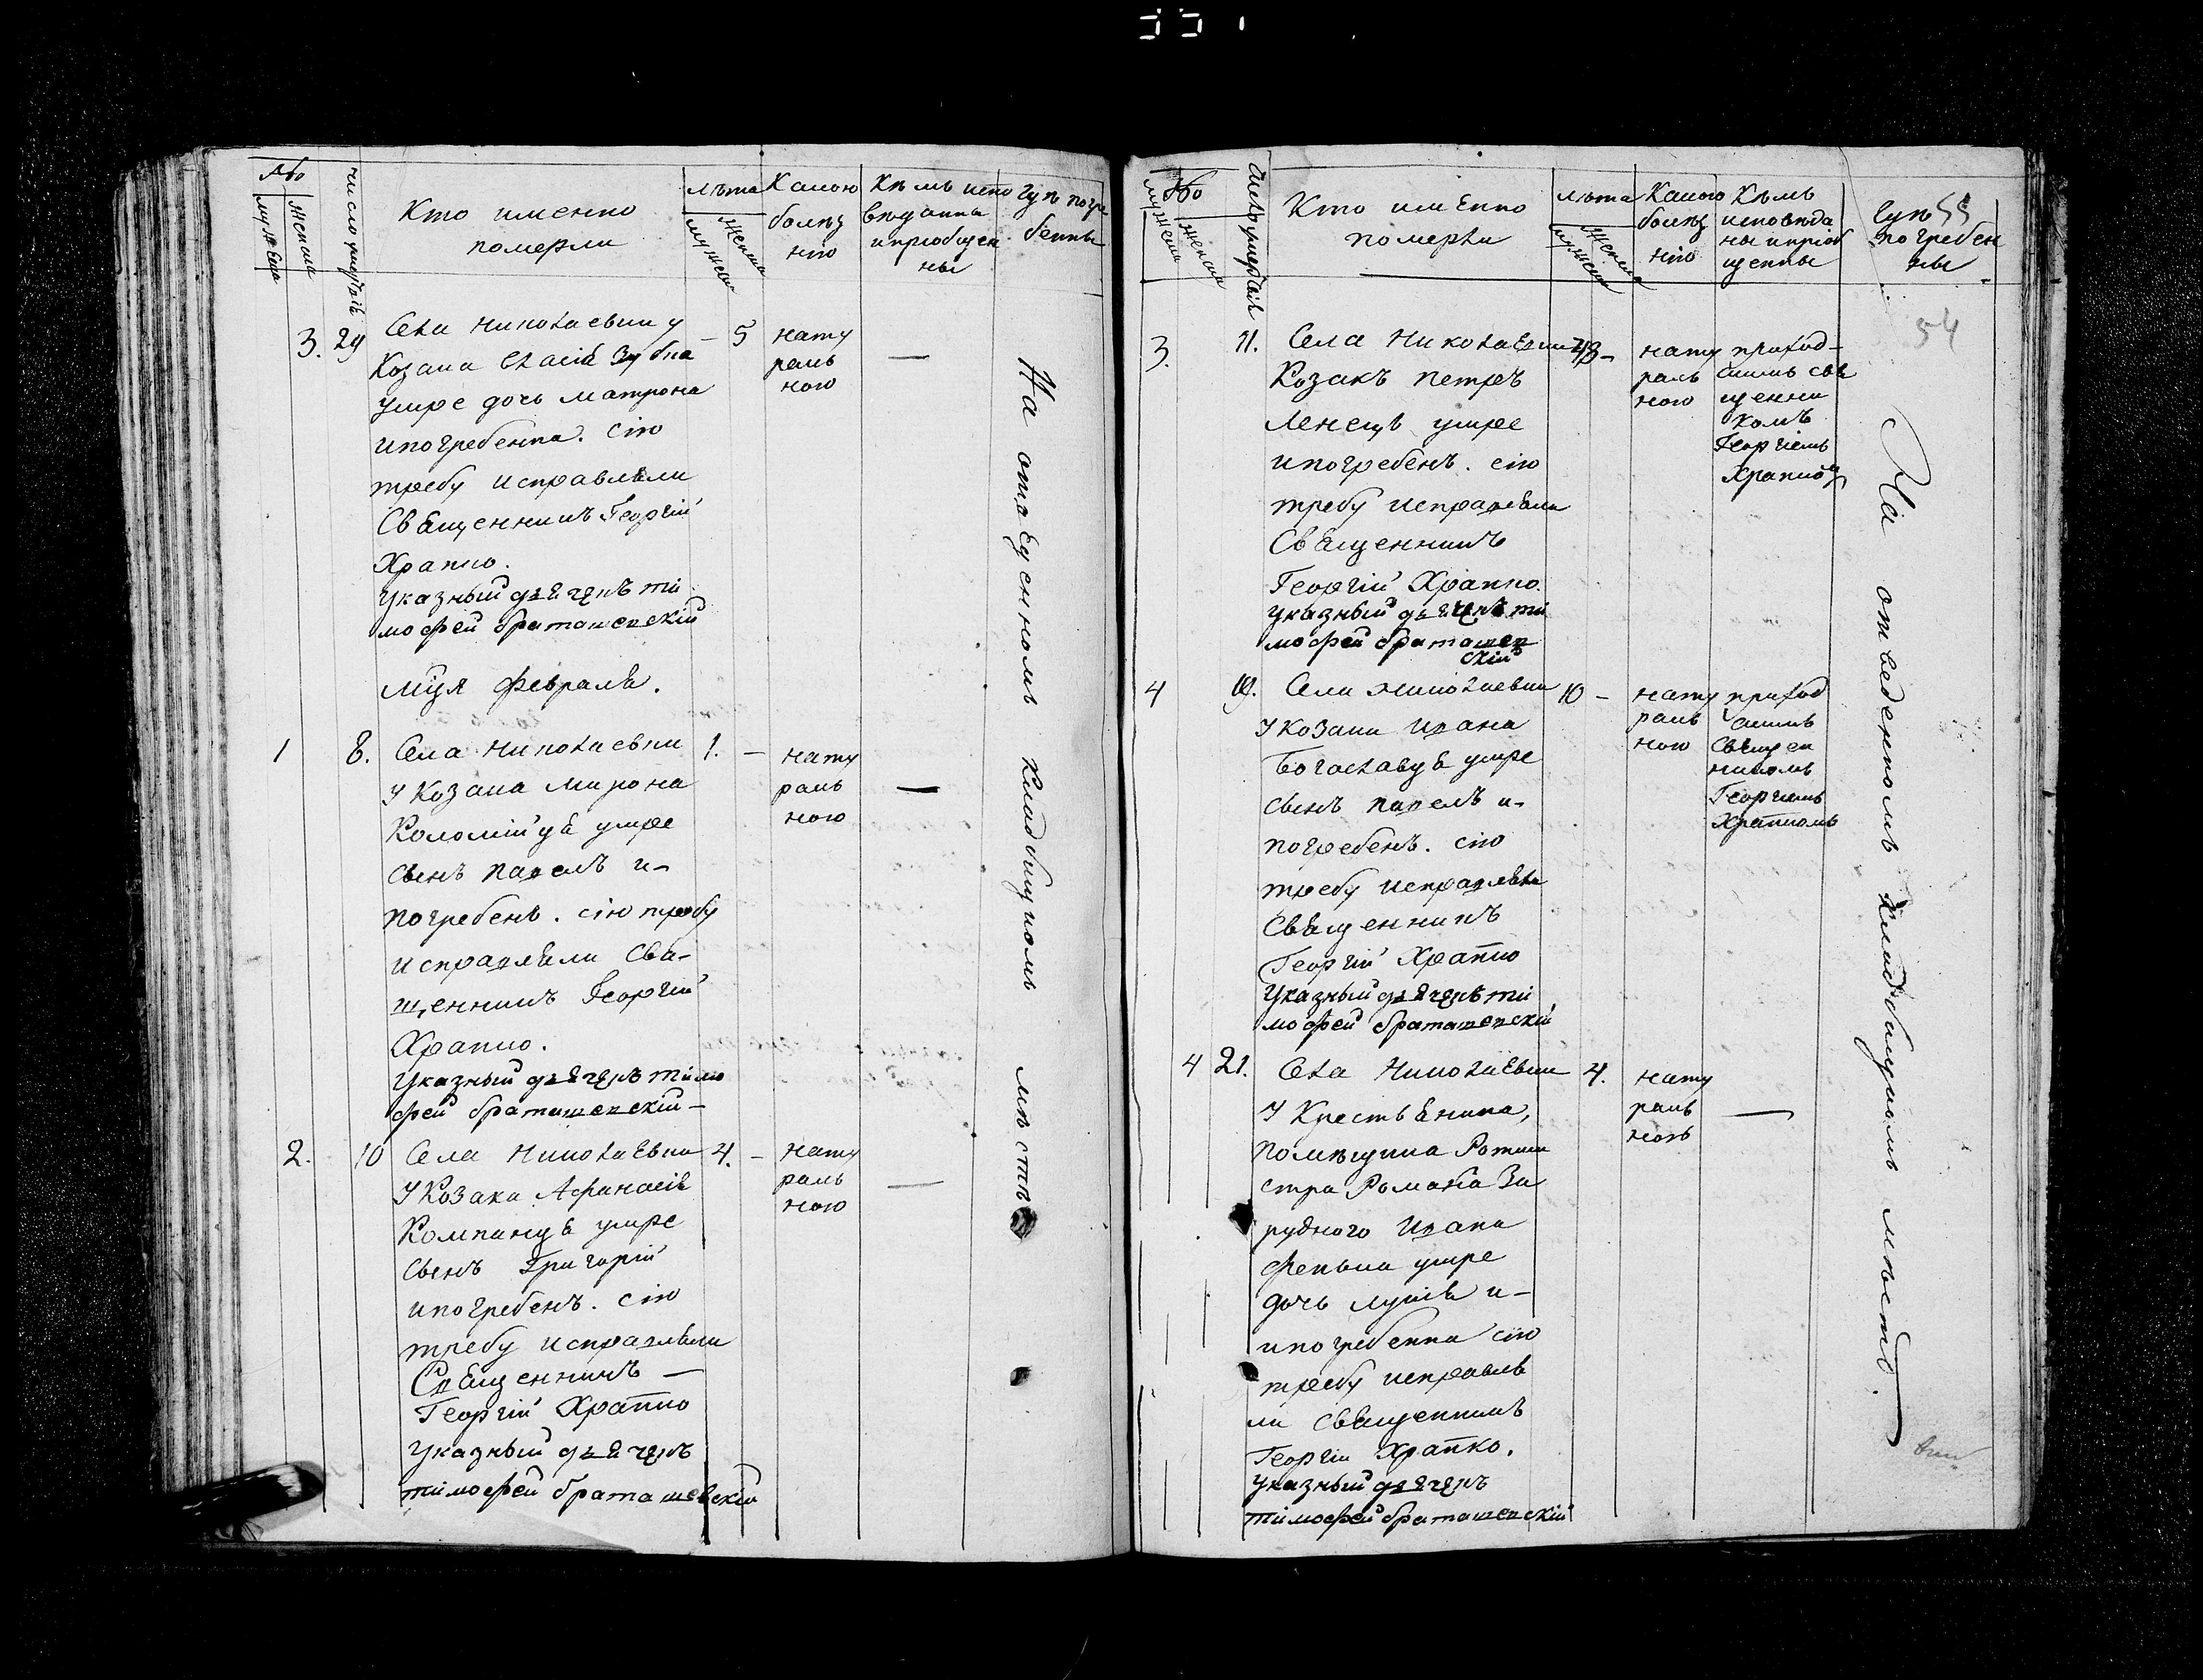 Кто именно
померли
лѣта
Какою
болѣз
нію
Кѣмъ испо
вѣданны
и пріобщен
ны
гдѣ погре
бенны
мужеска
женска
число умершихъ
3. 29
Села Николаевки у
Козака Власія Зубка
умре дочь Матрона
и погребенна. сію
требу исправляли
Священникъ Георгій
Храпко.
Указный дьячекъ Ти
мофей Браташевскій
5
нату
раль
ною
—
мця Февраля.
1 8.
Села Николаевки
У Козака Мирона
Коломійця умре
сынъ Павелъ и-
погребенъ. сію требу
исправляли Свя-
щенникъ Георгій
Храпко.
Указный дьячекъ Тимо
фей Браташевскій-
1. —
нату
раль
ною
—
2. 10
Села Николаевки
У Козака Афанасія
Компанця умре
сынъ Григорій
и погребенъ. сію
требу исправляли
Священникъ —
Георгій Храпко
Указный дьячекъ
Тимофей Браташевскій
4. —
нату
раль
ною
—
На отведенномъ кладбищномъ мѣстѣ
мужеска
женска
Кто именно
померли
лѣта
Какою
болѣз
нію
Кѣмъ
исповѣда
ны и пріоб
щенны
Гдѣ 55
погребен
ны
54
3. 11.
Села Николаевки
Козакъ Петръ
Ленецъ умре
и погребенъ. сію
требу исправляли
Священникъ
Георгій Храпко.
Указный дьячекъ Ти
мофей Браташев
скій
43-
нату
раль
ною
приход-
скимъ свя
щенни
комъ
Георгіемъ
Храпкомъ
4 19.
Села Николаевки
У Козака Ивана
Богославця умре
сынъ Павелъ и-
погребенъ. сію
требу исправляли
Священникъ
Георгій Храпко
Указный дьячекъ Ти
мофей Браташевскій
10 -
нату
раль
ною
приход
скимъ
Священ
никомъ
Георгіемъ
Храпкомъ
4 21.
Села Николаевки
У Крестьянина,
помѣщика Ротми
стра Романа За
рудного Ивана
умре
дочь и-
и погребенна сію
требу исправля
ли Священникъ
Георгій Храпко.
Указный дьячекъ
Тимофей Браташевскій
4.
нату
раль
ною
—
На отведенномъ кладбищномъ мѣстѣ.